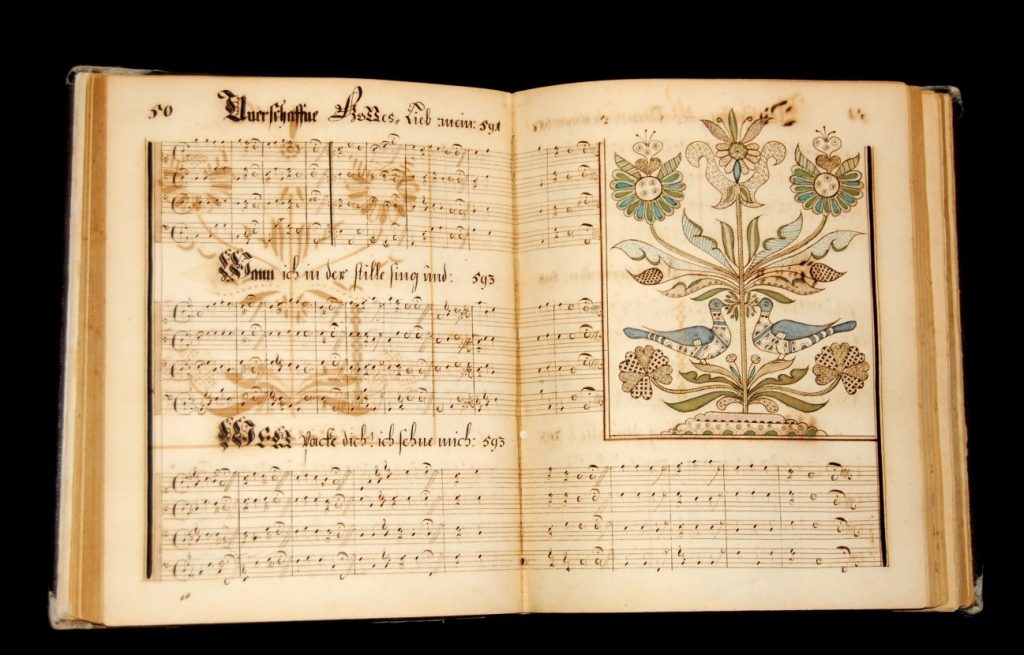 50
Unerschaffne Gottes, Lieb mein: 591
Wann ich in der stille sing und: 593
Welt packe dich! ich sehne mich: 593